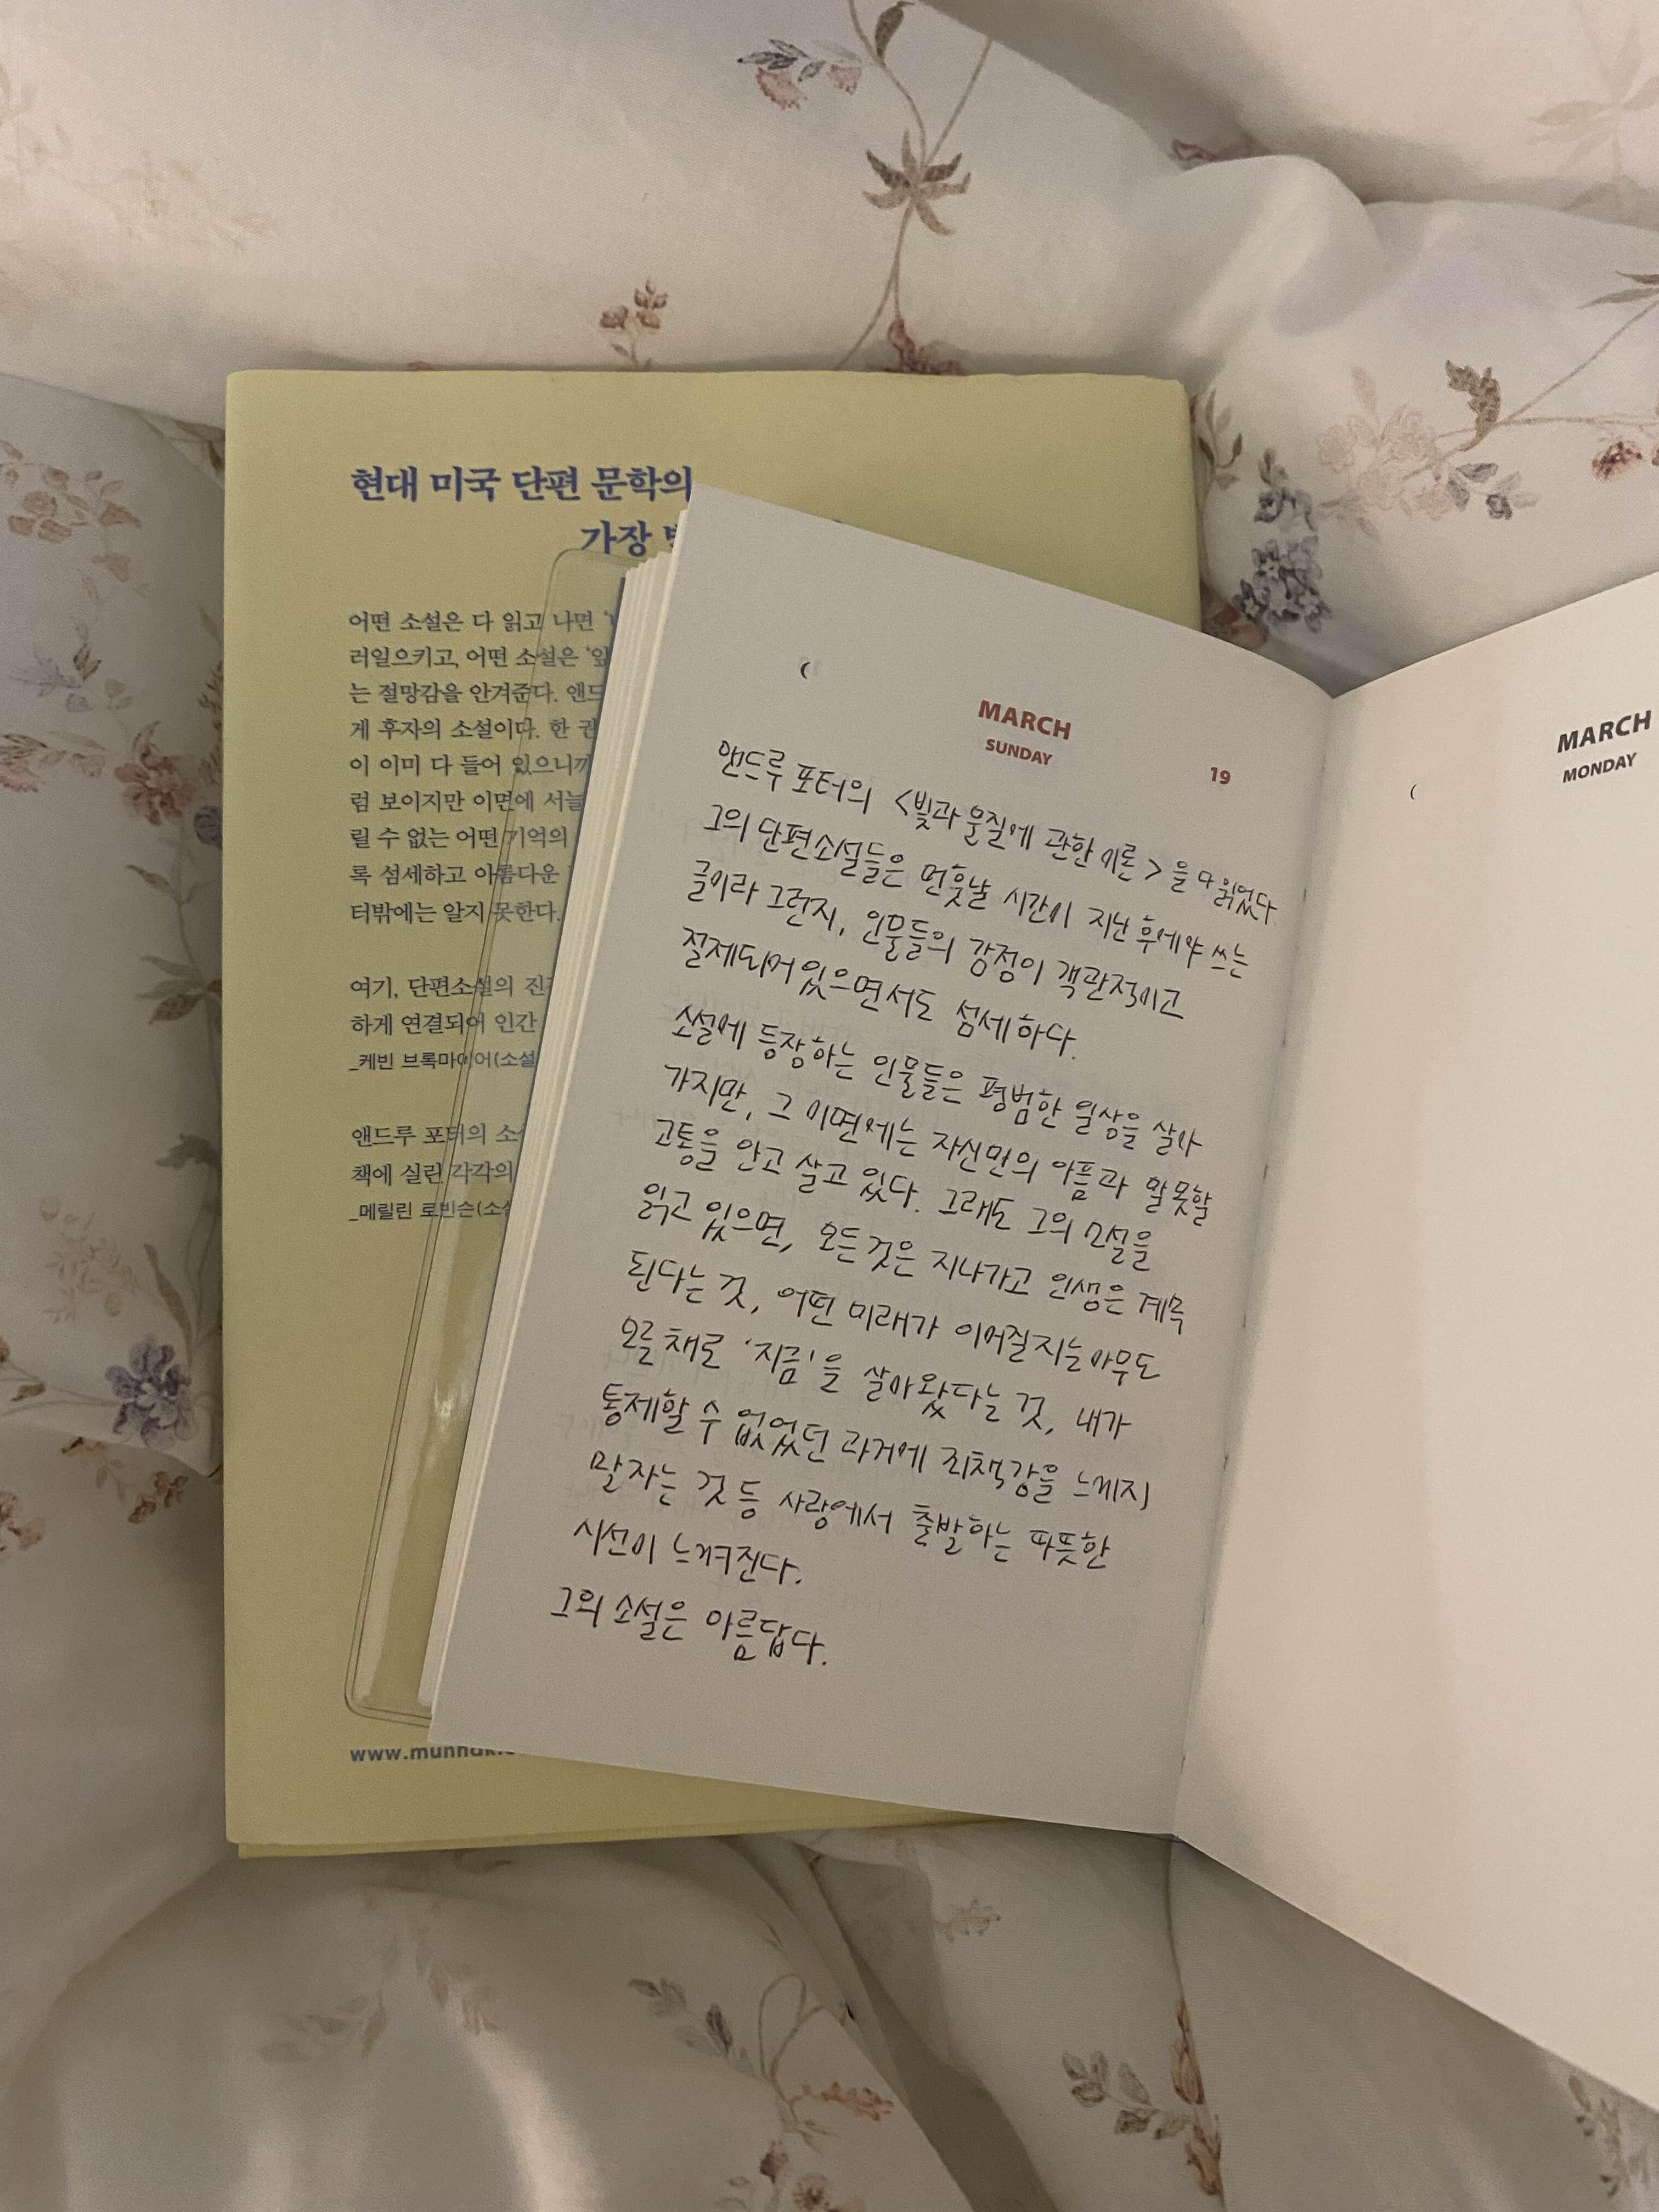 현대 미국 단편 문학의
가장
어떤 소설은 다 읽고 나면
러일으키고, 어떤 소설은
는 절망감을 안겨준다.
게 후자의 소설이다. 한
이 이미 다 들어 있으니까
럼 보이지만 이면에
릴 수 없는 어떤 기억의
록 섬세하고 아름다운
터밖에는 알지 못한다.
여기, 단편소설의
하게 연결되어 인간
_케빈 브록마이어(소설
앤드루 포터의
책에 실린 각각의
_메릴린 로빈슨(소설
MARCH
SUNDAY
19
앤드루 포터의 <빛과 물질에 관한 이론>을 다 읽었다.
그의 단편소설들은 먼훗날 시간이 지난 후에야 쓰는
글이라 그런지, 인물들의 감정이 객관적이고
절제되어 있으면서도 섬세하다.
소설에 등장하는 인물들은 평범한 일상을 살아
가지만, 그 이면에는 자신만의 아픔과 말못할
고통을 안고 살고 있다. 그래도 그의 소설을
읽고 있으면, 모든것은 지나가고 인생은 계속
된다는 것, 어떤 미래가 이어질지는 아무도
모를 채로 '지금'을 살아왔다는 것, 내가
통제할 수 없었던 과거에 죄책감을 느끼지
말자는 것 등 사랑에서 출발하는 따뜻한
시선이 느껴진다.
그의 소설은 아름답다.
MARCH
MONDAY